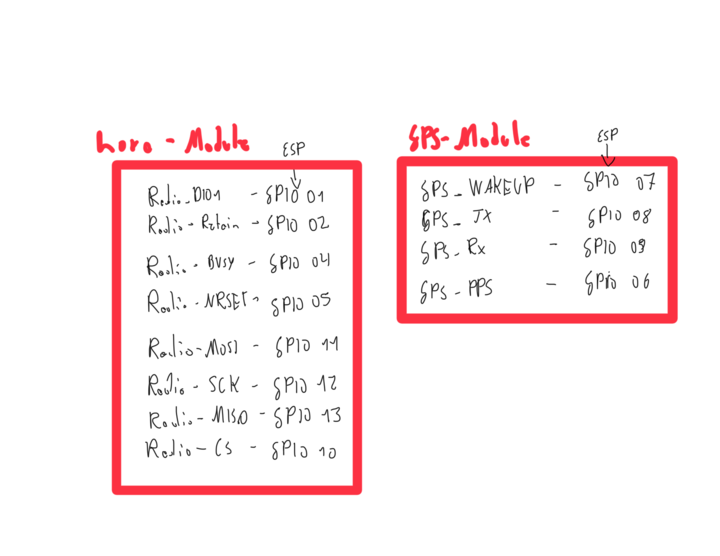 Lora - Module
ESP
Radio_DIO1 - GPIO 01
Radio - Retain - GPIO 02
Radio - BUSY - GPIO 04
Radio - NRSET - GPIO 05
Radio - MOSI - GPIO 11
Radio - SCK - GPIO 12
Radio - MISO - GPIO 13
Radio - CS - GPIO 10
GPS - Module
ESP
GPS_WAKEUP - GPIO 07
GPS_TX - GPIO 08
GPS_Rx - GPIO 09
GPS_PPS - GPIO 06